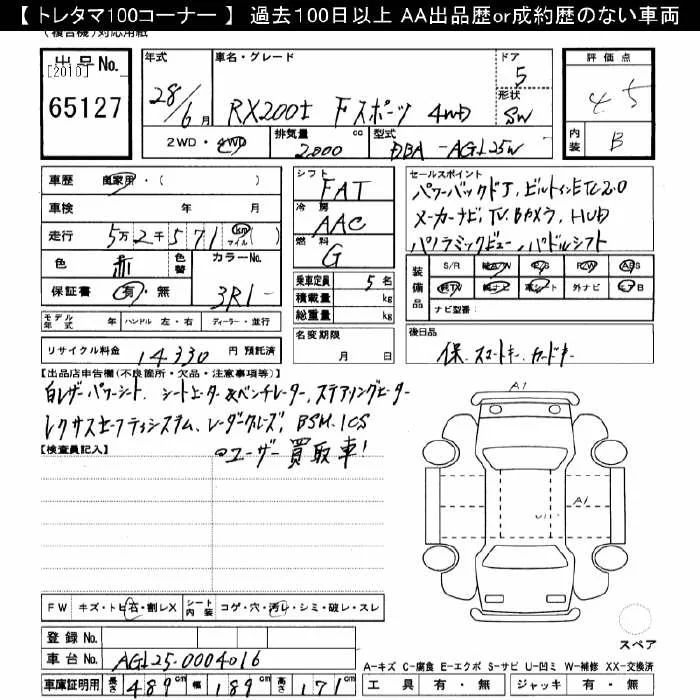 【 トレタマ100コーナー 】 過去100日以上 AA出品歴or成約歴のない車両
(複合機)対応用紙
出品No. 年式 車名・グレード ドア 評価点
[2010] 5
65127 28/6月 RX200t Fスポーツ 4WD 形状 SW 4.5
2WD・4WD 排気量 2,000 cc 型式 DBA-AGL25W 内装 B
車歴 自家用・( ) シフト FAT セールスポイント
パワーバックドア、ビルトインETC2.0
車検 年 月 冷房 AAC メーカーナビ,TV,Bカメラ,HUD
走行 5万2千571 km マイル ( ) 燃料 G パノラミックビュー、パドルシフト
色 赤 色替 カラーNo. 乗車定員 5名 装備品 S/R 純A/W P/S P/W ABS
保証書 有・無 3R1- 積載量 kg 純TV 純ナビ 革シート 外ナビ エアB
総重量 kg ナビ型番:
モデル年式 年 ハンドル 左・右 ディーラー・並行 名変期限 月 日 後日品
リサイクル料金 14,330 円 預託済 保、スマートキー、カードキー
【出品店申告欄(不良箇所・欠品・注意事項等)】
白レザーパワーシート、シートヒーター&ベンチレーター,ステアリングヒーター
レクサスセーフティシステム、レーダークルーズ,BSM,ICS
ユーザー買取車!
【検査員記入】
A1
A1
U1
FW キズ・トビ石・割レX シート内装 コゲ・穴・汚レ・シミ・破レ・スレ
登録 No.
スペア
車台 No. AGL25-0004016
A-キズ C-腐食 E-エクボ S-サビ U-凹ミ W-補修 XX-交換済
車庫証明用 長さ 489cm 幅 189cm 高さ 171cm 工具 有・無 ジャッキ 有・無